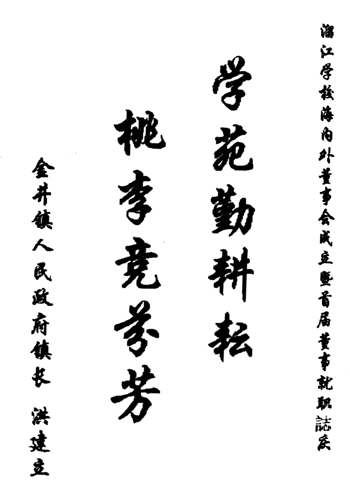 溜江学校海内外董事会成立暨首届董事就职誌庆
学苑勤耕耘
桃李竞芬芳
金井镇人民政府镇长 洪建立